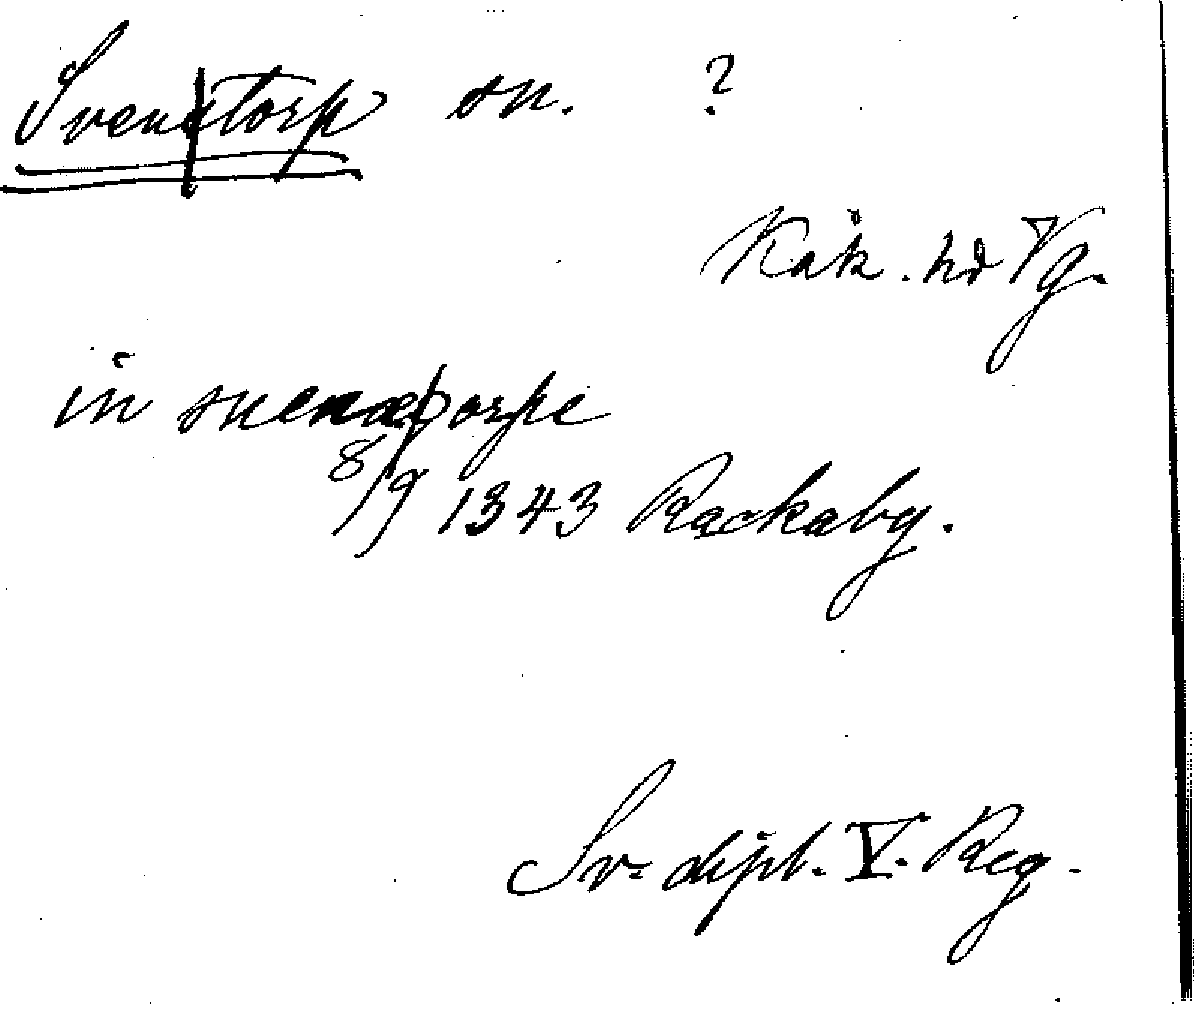 Svenstorp sn. ?
Kåk. hd Vg.
in suenæþorpe
8/9 1343 Rackaby.
Sv. dipl. V. Reg.